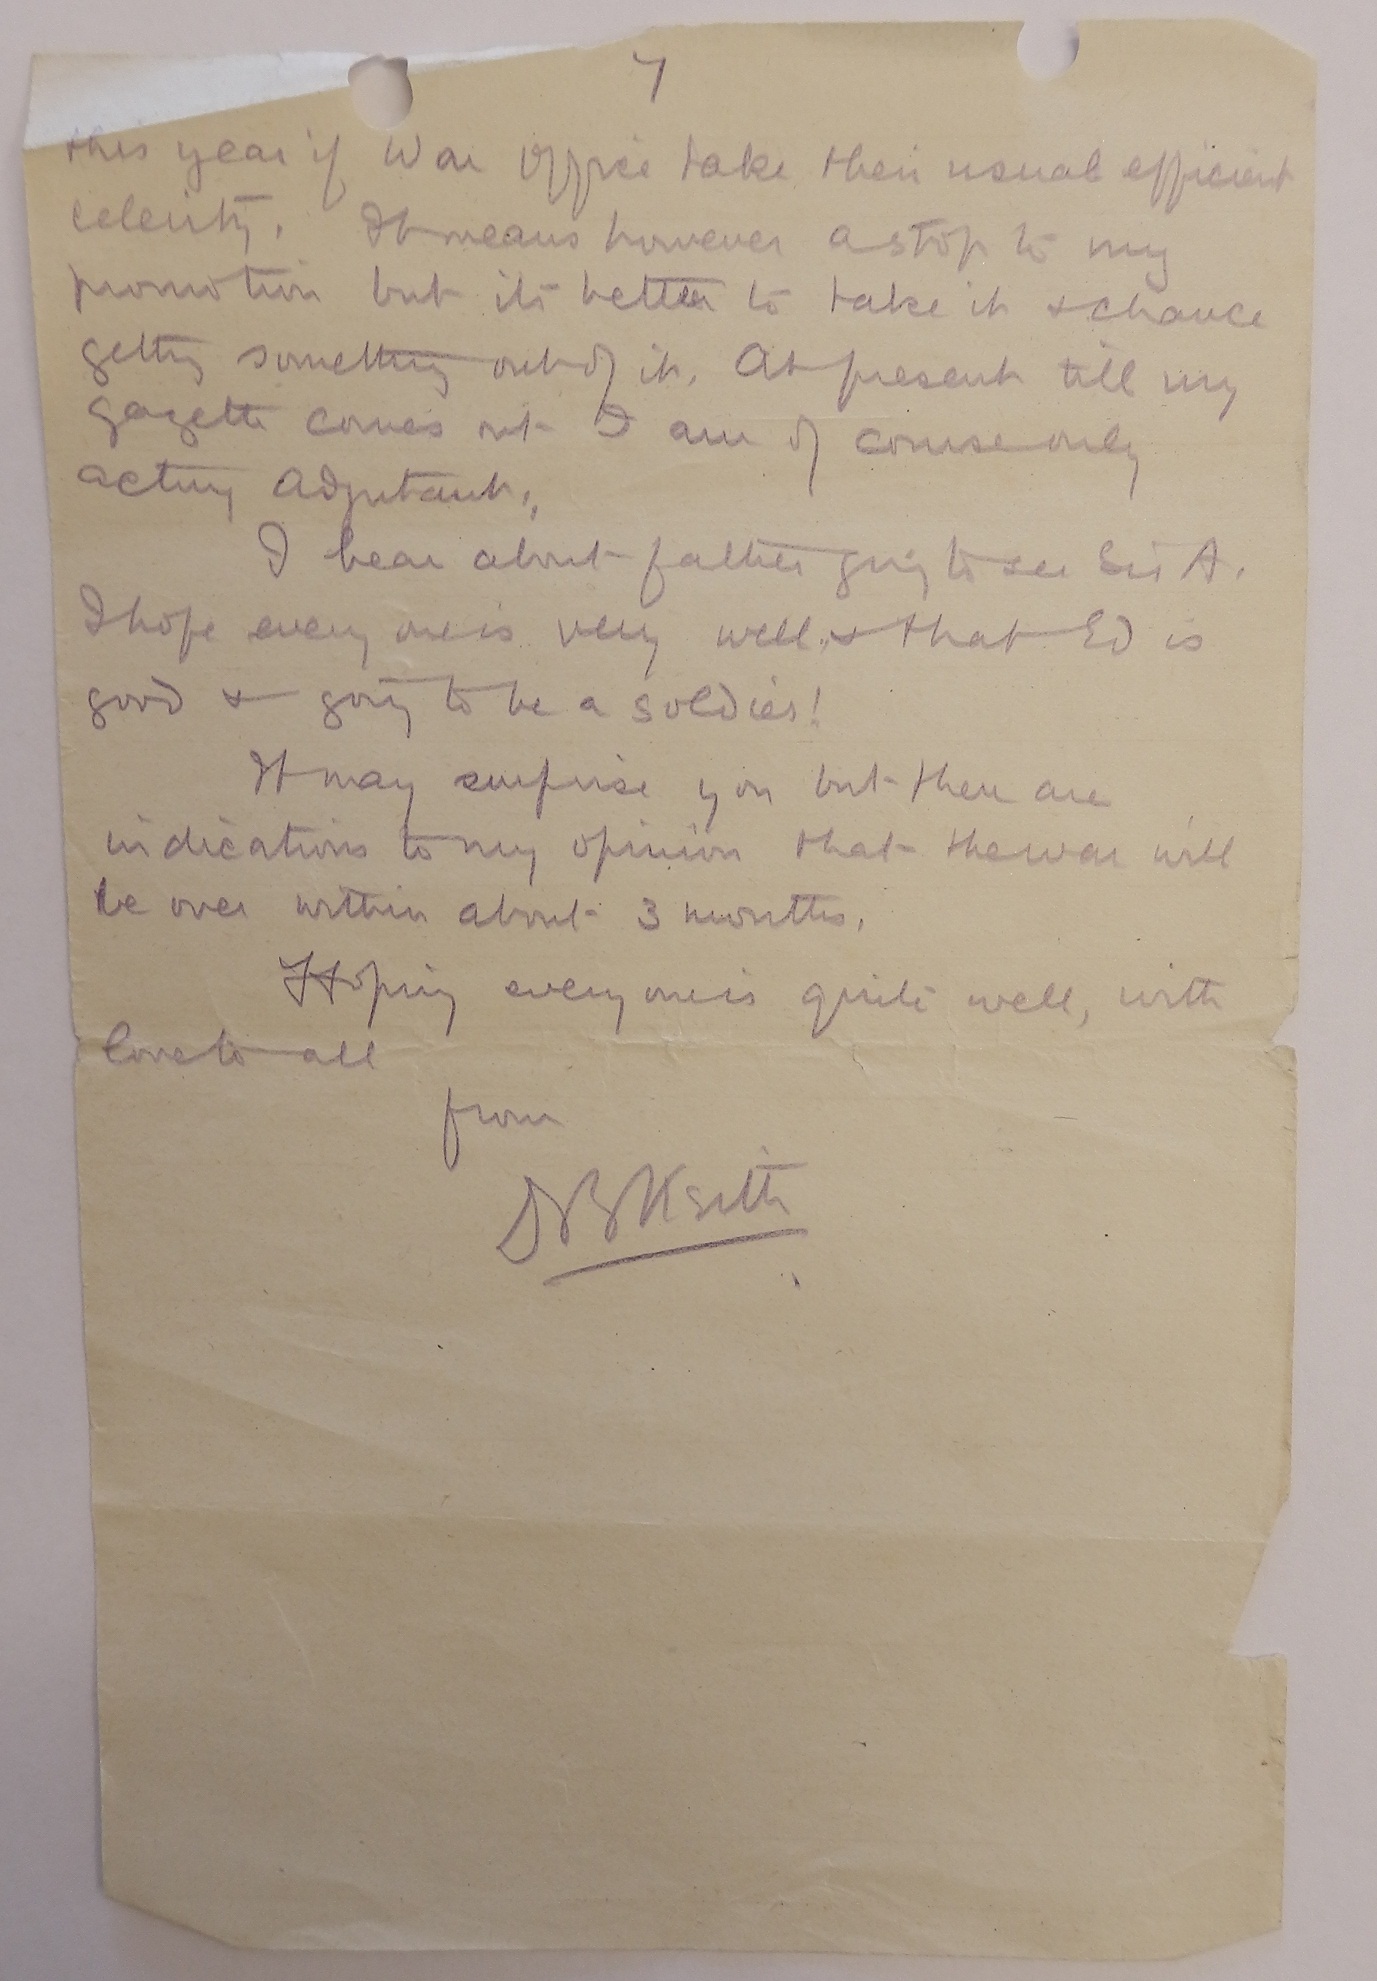 7
this year if War Office take their usual efficient
celerity. It means however a stop to my
promotion but its better to take it & chance
getting something out of it. At present till my
gazette comes out I am of course only
acting Adjutant.
I hear about father going to see Sir A.
I hope everyone is very well & that Ed is
good & going to be a soldier!
It may surprise you but there are
indications to my opinion that the war will
be over within about 3 months.
Hoping everyone is quite well, with
love to all
from
DBKeith